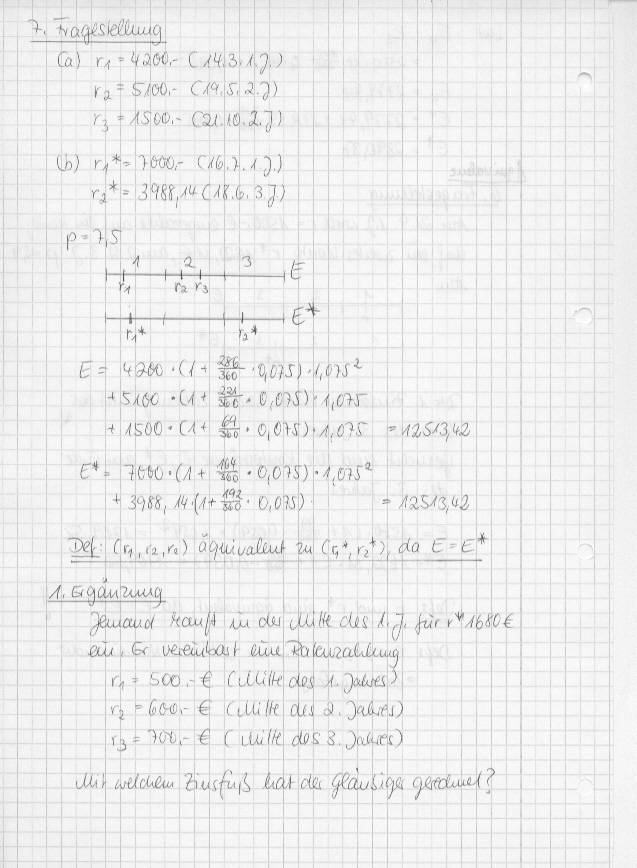 7. Fragestellung
(a) r1 = 4200,- (14.3.1.J.)
r2 = 5100,- (19.5.2.J)
r3 = 1500,- (21.10.2.J)
(b) r1* = 7000,- (16.7.1J.)
r2* = 3988,14 (18.6.3.J)
p = 7,5
1 2 3 E
r1 r2 r3
E*
r1* r2*
E = 4200 · (1 + 286/360 · 0,075) · 1,075²
+ 5100 · (1 + 221/360 · 0,075) · 1,075
+ 1500 · (1 + 69/360 · 0,075) · 1,075 = 12513,42
E* = 7000 · (1 + 164/360 · 0,075) · 1,075²
+ 3988,14 · (1 + 192/360 · 0,075) · = 12513,42
Def: (r1, r2, r2) äquivalent zu (r1*, r2*), da E = E*
1. Ergänzung
Jemand kauft in der Mitte des 1.J. für r* 1680€
ein. Er vereinbart eine Ratenzahlung
r1 = 500,- € (Mitte des 1. Jahres)
r2 = 600,- € (Mitte des 2. Jahres)
r3 = 700,- € (Mitte des 3. Jahres)
Mit welchem Zinsfuß hat der Gläubiger gerechnet?